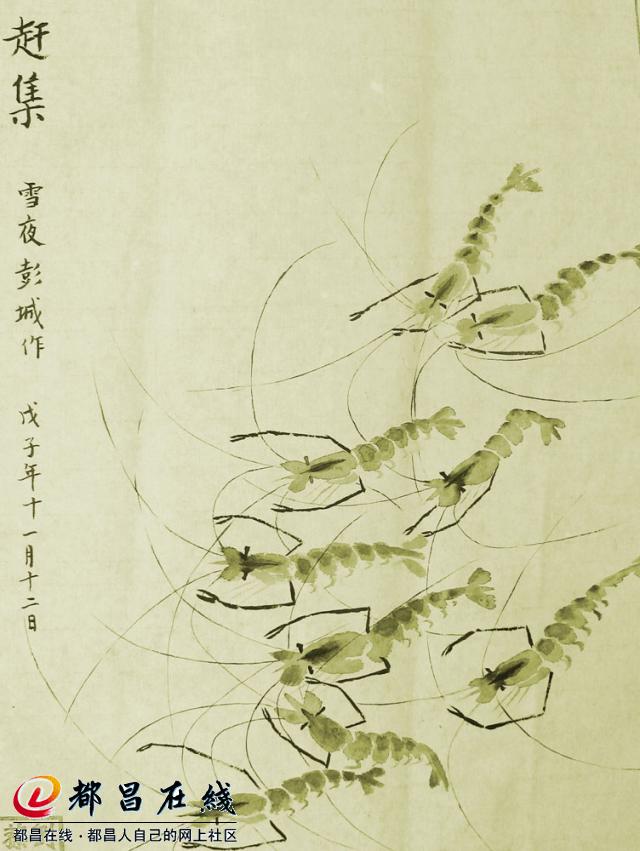 赶集
雪夜彭城作
戊子年十一月十二日
都昌在线
都昌在线·都昌人自己的网上社区